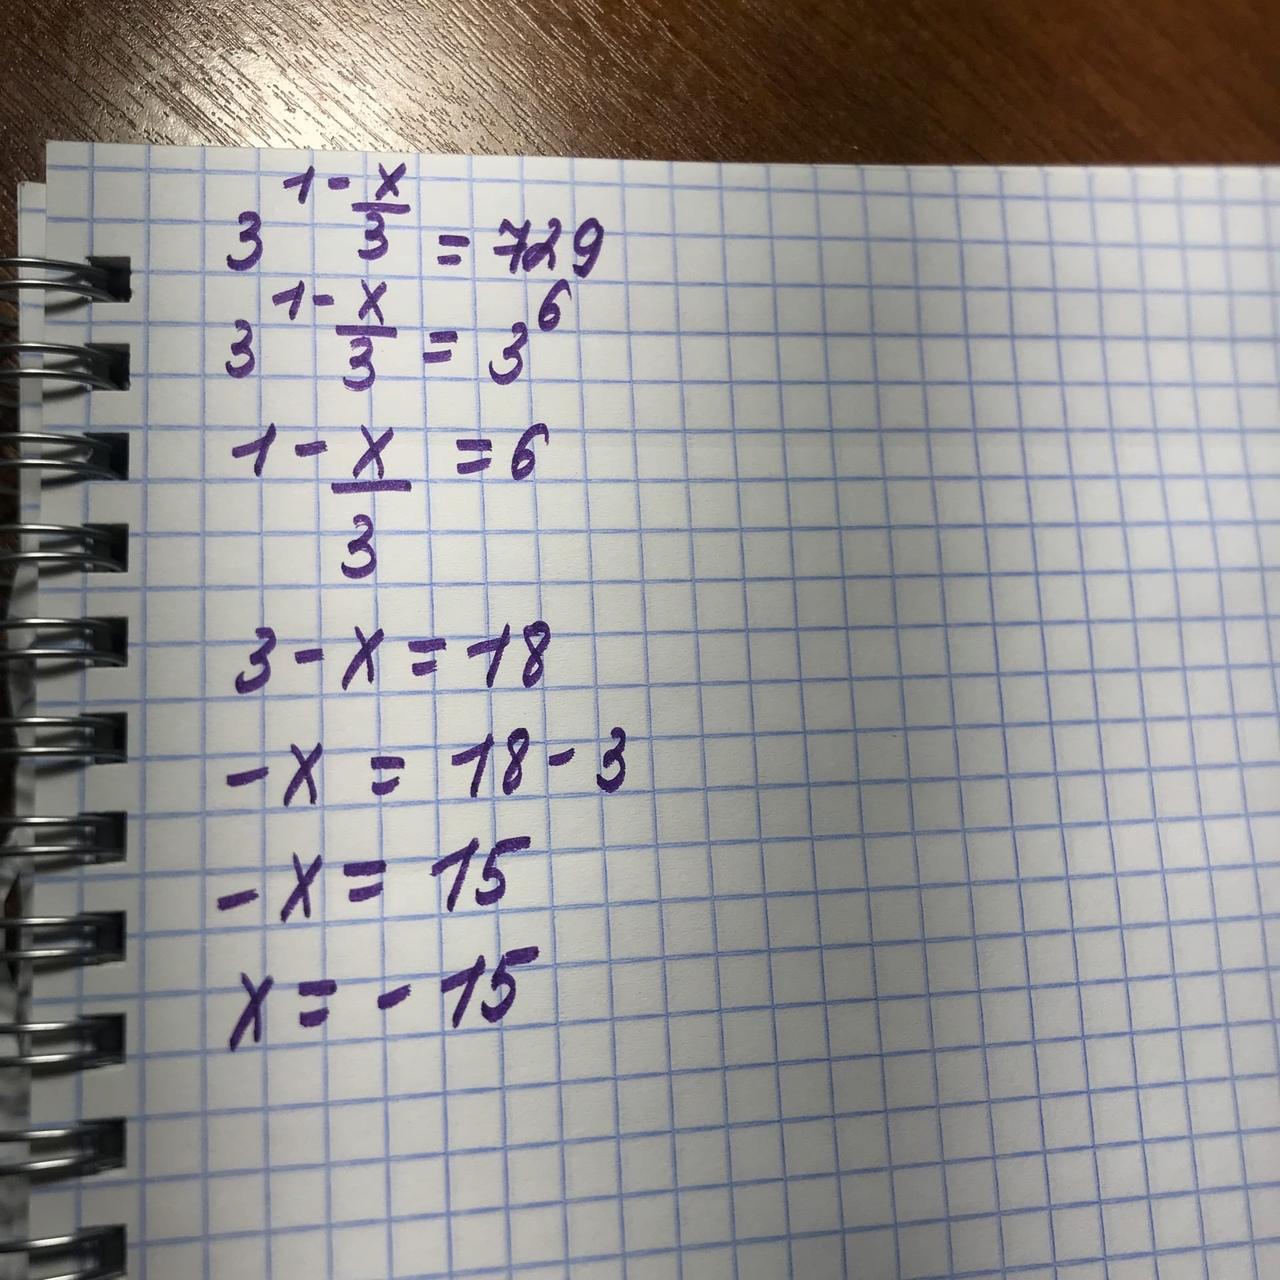 3^{1-\frac{x}{3}} = 729
3^{1-\frac{x}{3}} = 3^6
1-\frac{x}{3} = 6
3 - x = 18
-x = 18 - 3
-x = 15
x = -15